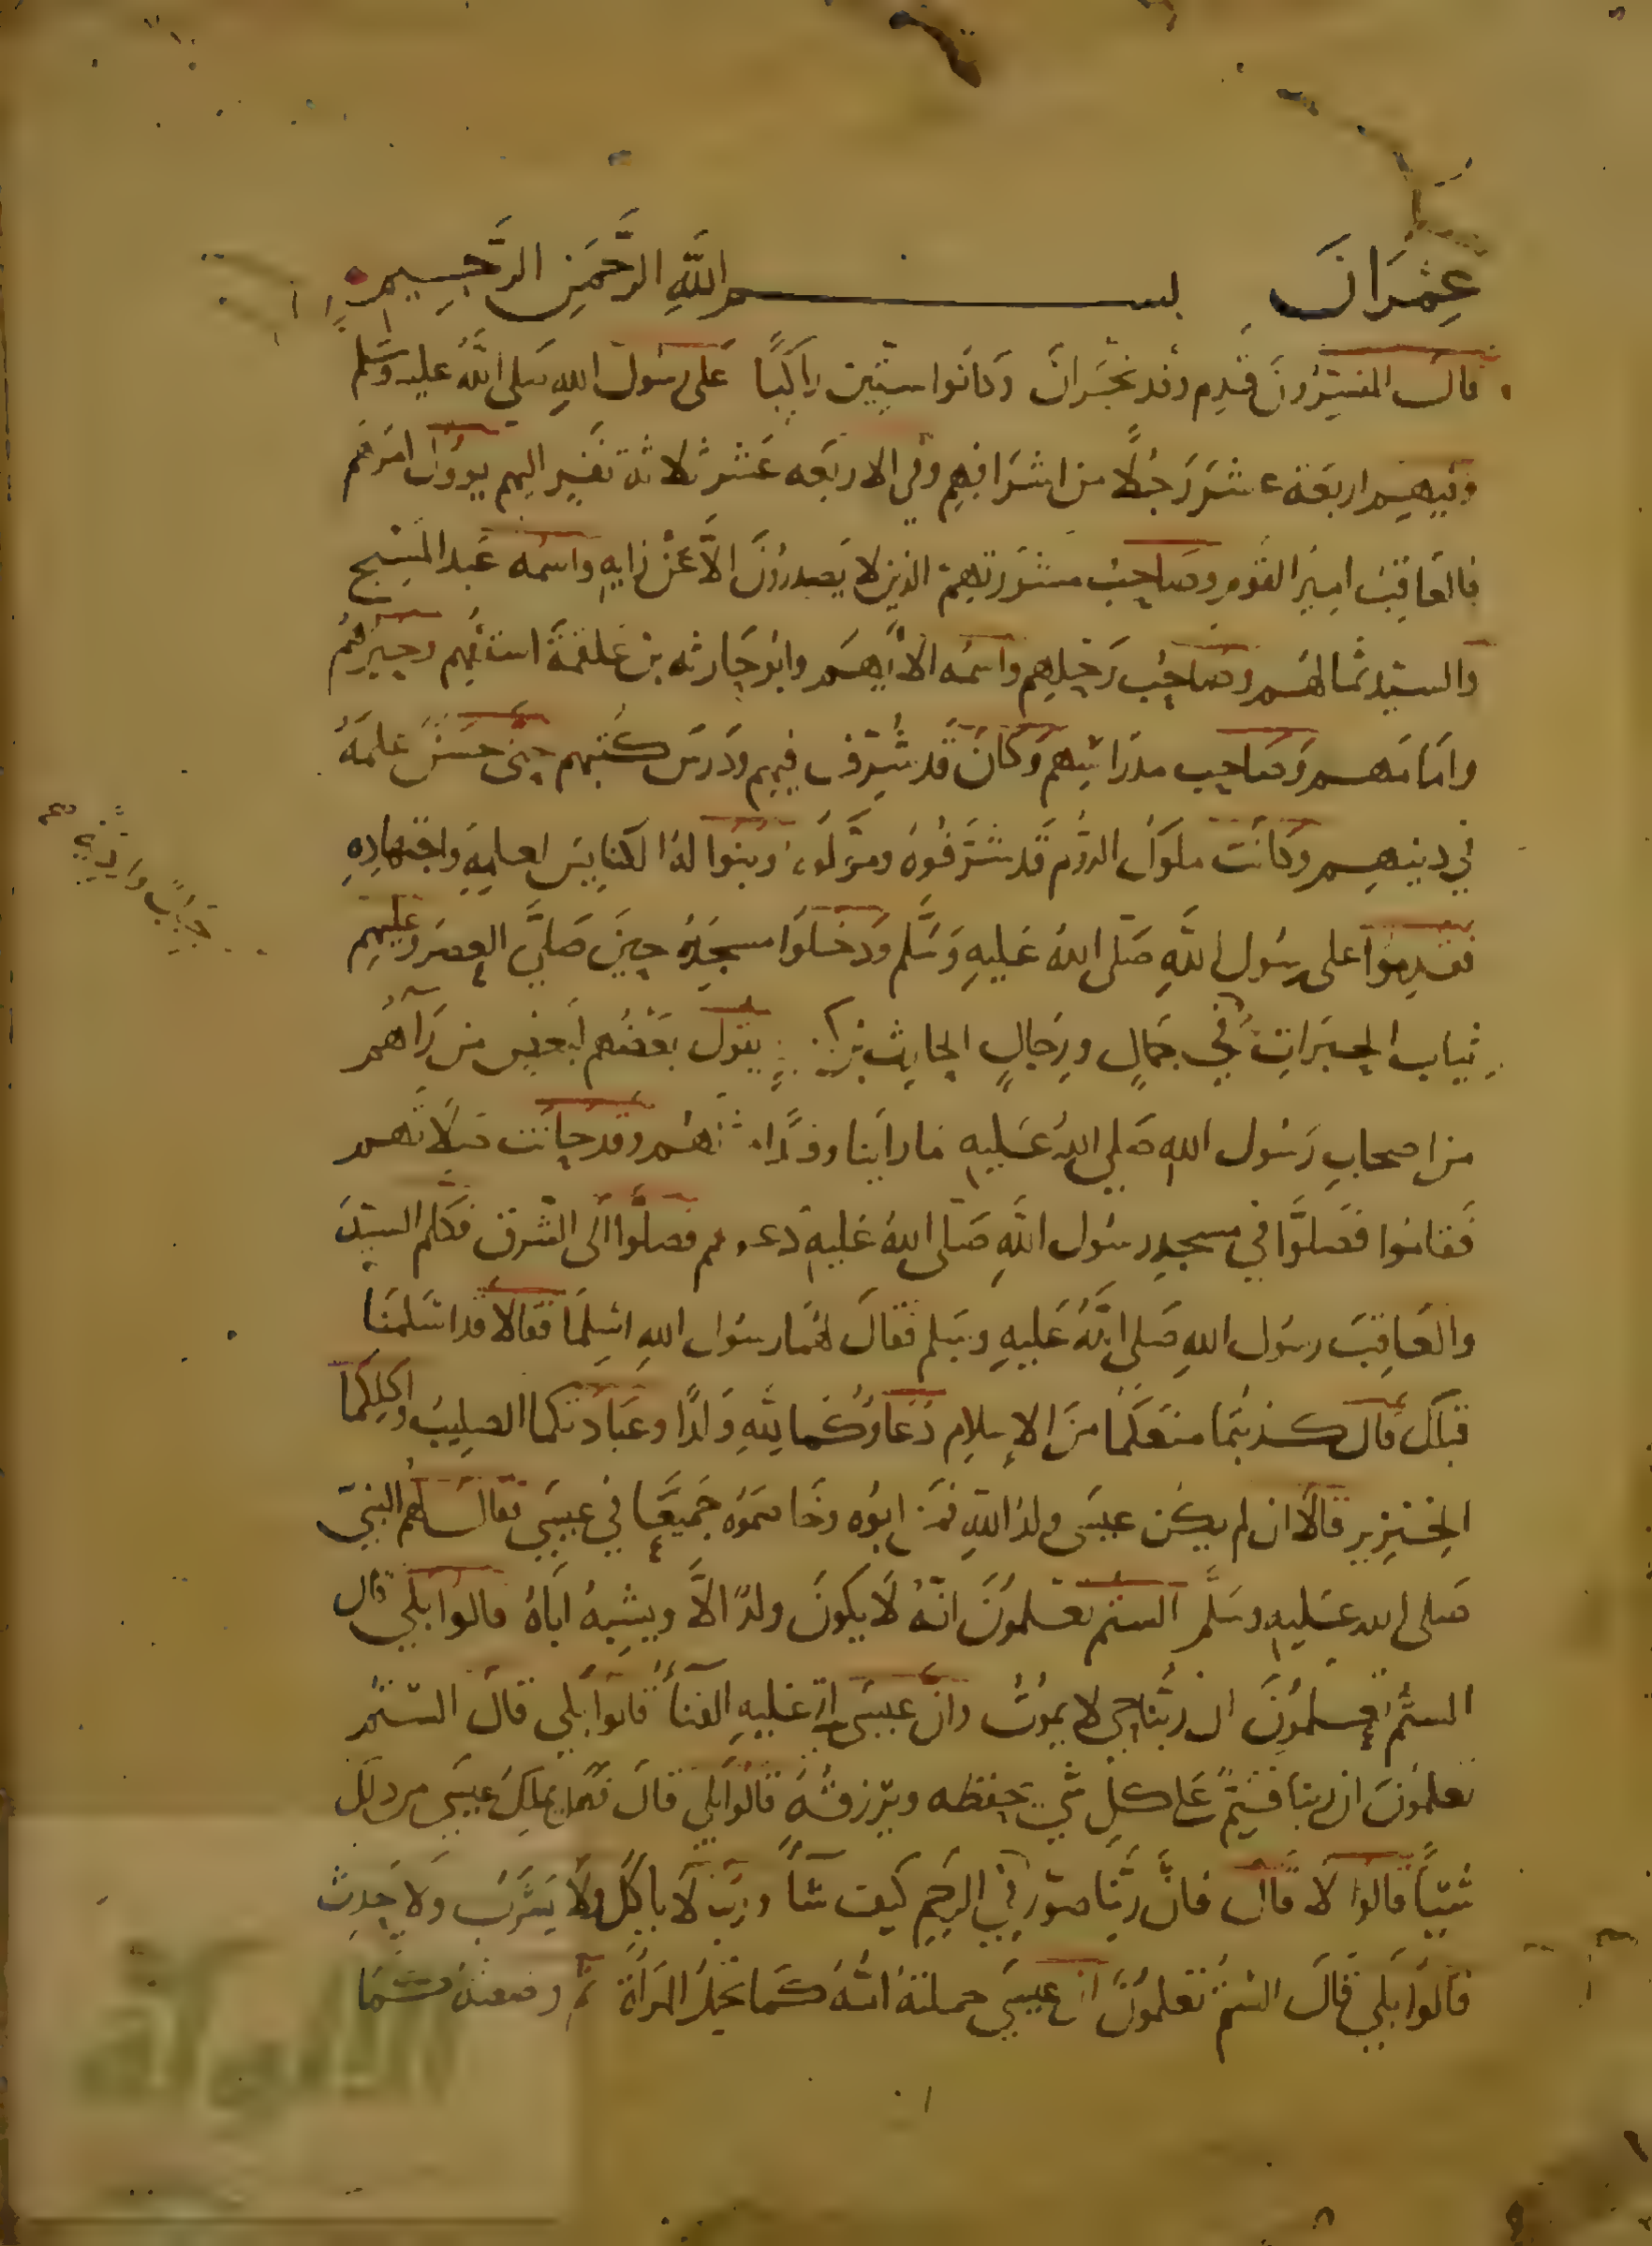 عِمْرَانَ بسم اللَّهِ الرَّحْمَنِ الرَّحِيمِ
قال المفسّرون قدم وفد نجران وكانوا ستين راكبًا على رسول الله صلى الله عليه وسلم
وفيهم اربعة عشر رجلًا من اشرافهم وفي الاربعه عشر ثلاثة نفر اليهم يوول امرهم
فالعاقب امير القوم وصاحب مشورتهم الذين لا يصدرون الا عن رايه واسمه عبد المسيح
والسيد ثمالهم وصاحب رحلهم واسمه الأيهم وابو حارثه بن علقمة اسقفهم وحبرهم
وامامهم وصاحب مدراسهم وكان قد شرف فيهم ودرس كتبهم حتى حسن علمه
في دينهم وكانت ملوك الروم قد شرفوه وموّلوه وبنوا له الكنايس لعلمه واجتهاده
فقدموا على رسول الله صلى الله عليه وسلم ودخلوا مسجده حين صلى العصر وعليهم
ثياب الحبرات في جمال ورجال الحارث بن يقول بعضهم لبعض من رآهم
من اصحاب رسول الله صلى الله عليه ما راينا وفدًا وقد حانت صلاتهم
فقاموا فصلوا في مسجد رسول الله صلى الله عليه فصلوا الى الشرق فكلم السيد
والعاقب رسول الله صلى الله عليه وسلم فقال لهما رسول الله اسلما فقالا قد اسلمنا
قبلك قال كذبتما منعكما من الإسلام دعاؤكما لله ولدًا وعبادتكما الصليب واكلكما
الخنزير قالا ان لم يكن عيسى ولد الله فمن ابوه وخاصموه جميعًا في عيسى فقال لهم النبي
صلى الله عليه وسلم الستم تعلمون انه لا يكون ولدٌ الا ويشبه اباه قالوا بلى قال
الستم تعلمون ان ربنا حي لا يموت وان عيسى عليه الفنا قالوا بلى قال الستم
تعلمون ان ربنا قيّم على كل شي يحفظه ويرزقه قالوا بلى قال فهل يملك عيسى من ذلك
شيئًا قالوا لا قال فان ربنا صوّر في الرحم كيف شا وربنا لا ياكل ولا يشرب ولا يحدث
قالوا بلى قال الستم تعلمون ان عيسى حملته امه كما تحمل المراة ثم وضعته كما
الألوكة